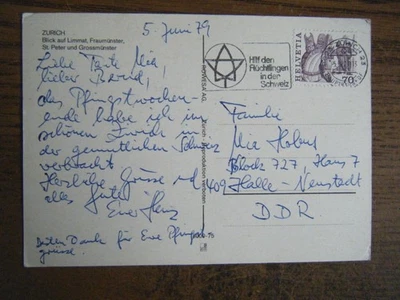 ZÜRICH
Blick auf Limmat, Fraumünster,
St. Peter und Grossmünster
5. Juni 79
Liebe Tante Mia,
lieber Bernd,
das Pfingstwochen-
ende habe ich im
schönen Zürich in
der gemütlichen Schweiz
verbracht
Herzliche Grüsse und
alles Gute
Euer Heinz
Besten Dank für Eure Pfingst-
grüsse.
Hilf den
Flüchtlingen
in der
Schweiz
HELVETIA
70
Familie
Mia
Block 727, Haus 7
409 Halle-Neustadt
DDR.